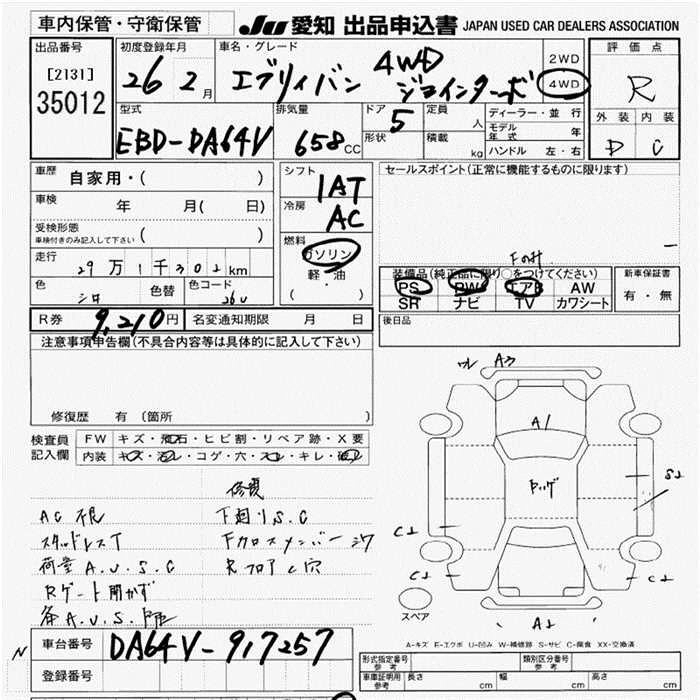 車内保管・守衛保管
JU 愛知 出品申込書 JAPAN USED CAR DEALERS ASSOCIATION
出品番号
[2131]
35012
初度登録年月
26 2月
車名・グレード
エブリィバン 4WD
ジョインターボ
2WD
4WD
評価点
R
外装 内装
D C
型式
EBD-DA64V
排気量
658cc
ドア
5
形状
定員
人
積載
kg
ディーラー・並行
モデル年式 年
ハンドル 左・右
車歴
自家用・( )
車検
年 月( 日)
受検形態
車検付きのみ記入して下さい ( )
走行
29万1千302km
色
シロ
色替
色コード
26U
シフト
IAT
冷房
AC
燃料
ガソリン
軽・油
( ・ )
セールスポイント(正常に機能するものに限ります)
装備品(純正品に限り○をつけてください)
PS PW エアB AW
SR ナビ TV カワシート
新車保証書
有・無
R券 9,210円
名変通知期限 月 日
後日品
注意事項申告欄(不具合内容等は具体的に記入して下さい)
修復歴 有 (箇所 )
検査員記入欄
FW キズ・飛石・ヒビ割・リペア跡・X要
内装 キズ・汚レ・コゲ・穴・スレ・キレ・破レ
修複
AC不良
スタッドレスT
荷室A.U.S.C
Rゲート開かず
各A.U.S.凹
下廻りS.C
Fクロスメンバー
フロア C穴
A3
A1
S2
C2
C2
C2
C2
A2
スペア
A-キズ E-エクボ U-凹み W-補修跡 S-サビ C-腐食 XX-交換済
車台番号
DA64V-917257
登録番号
N
形式指定番号
参考
類別区分番号
参考
車庫証明用
参考
長さ cm
幅 cm
高さ cm